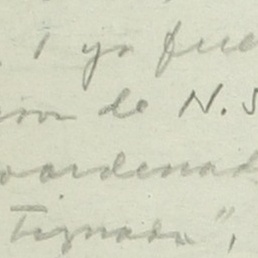 , 1 yo fue
ion de N.S
oordenad
Tiznada",